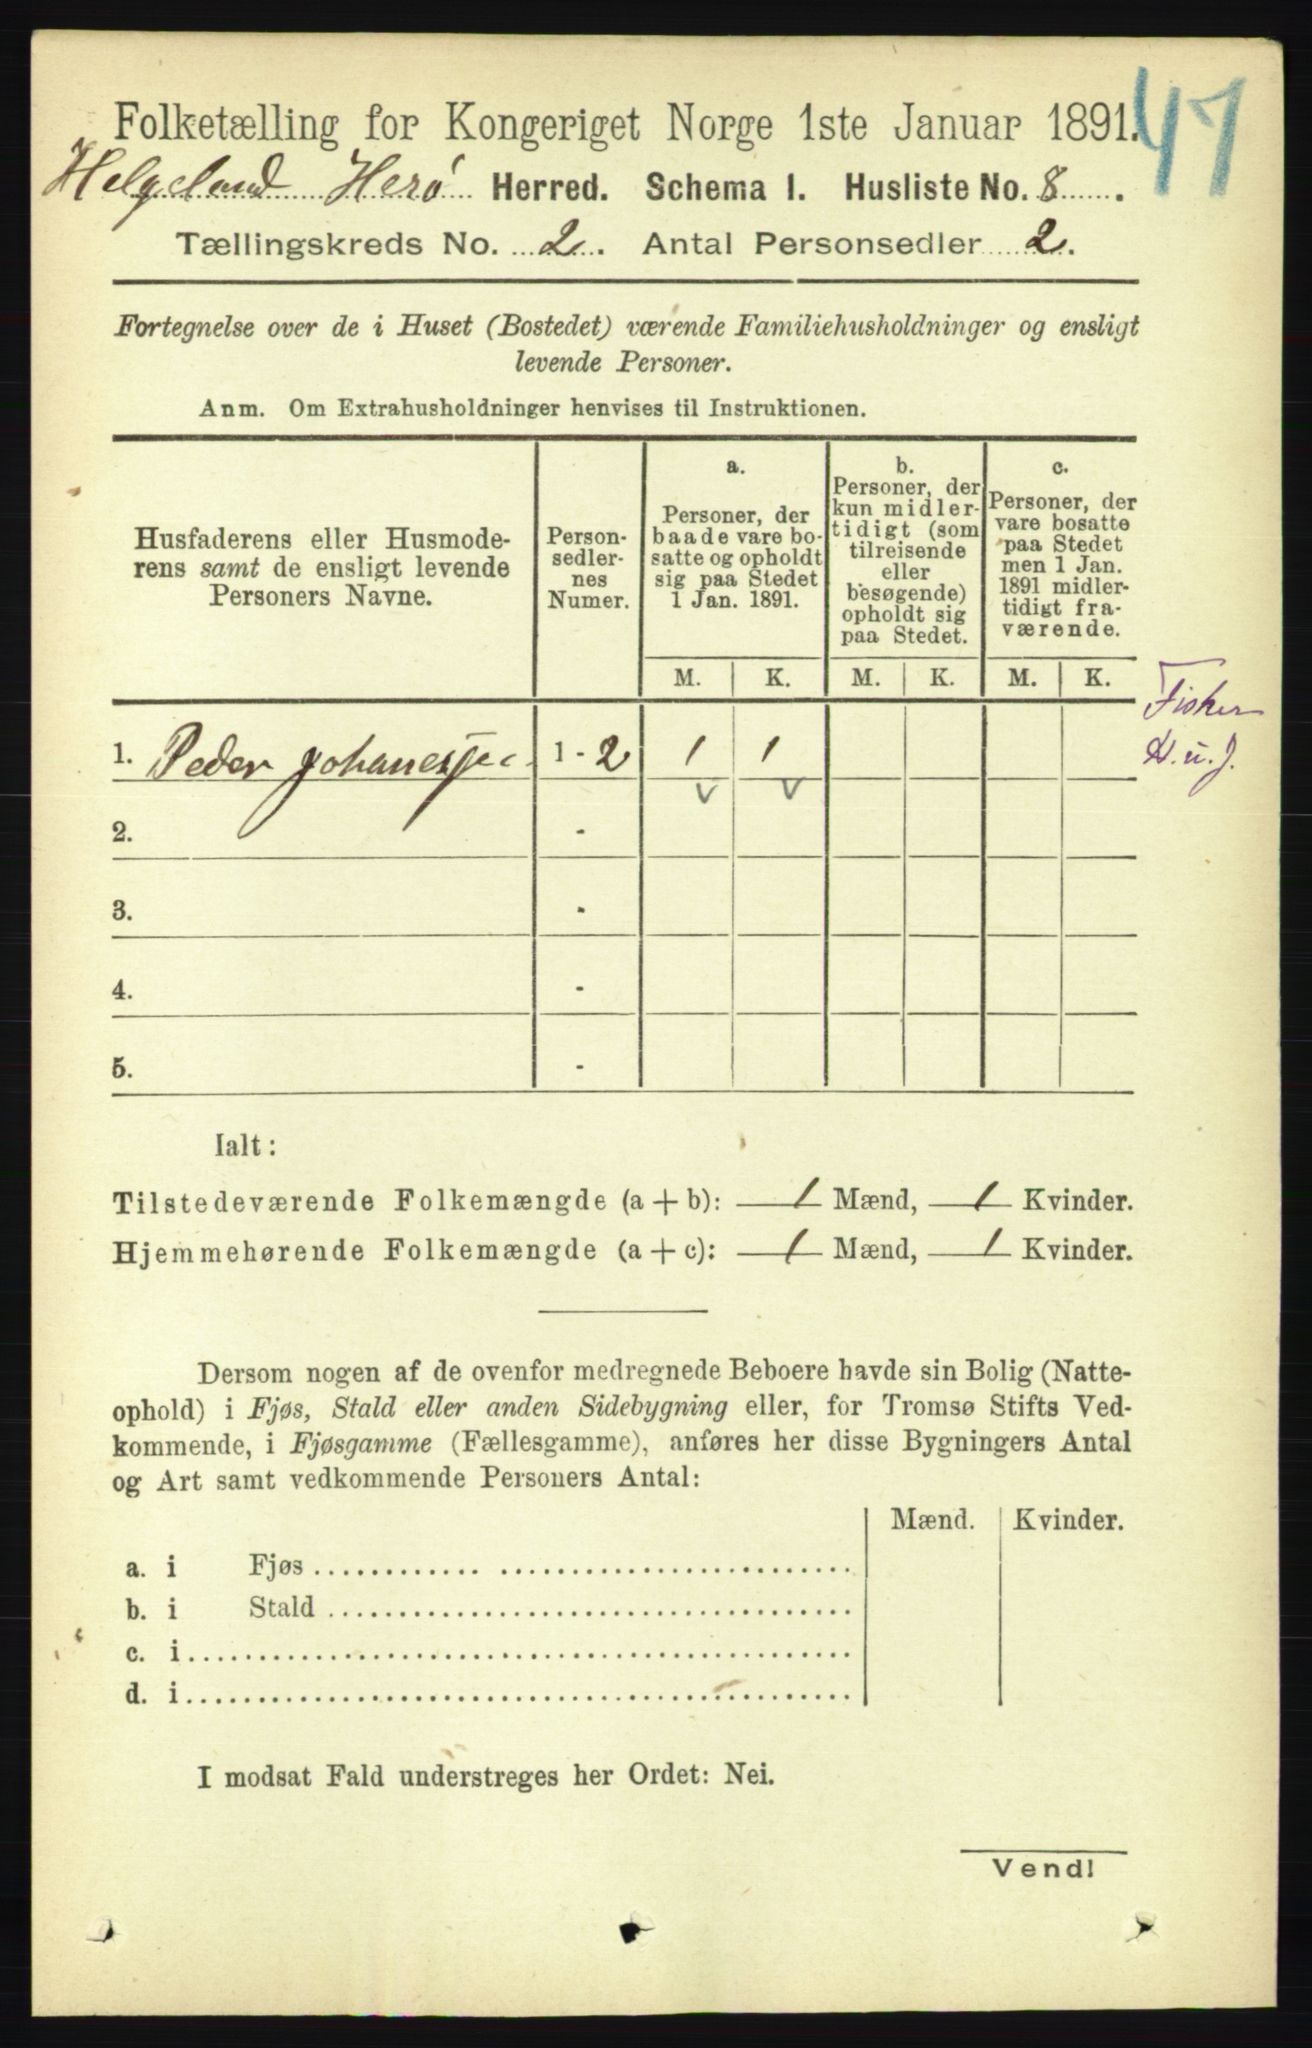 47
Folketælling for Kongeriget Norge 1ste Januar 1891.
Helgeland Herø Herred. Schema 1. Husliste No. 8.
Tællingskreds No. 2. Antal Personsedler 2.
Fortegnelse over de i Huset (Bostedet) værende Familiehusholdninger og ensligt
levende Personer.
Anm. Om Extrahusholdninger henvises til Instruktionen.
Husfaderens eller Husmode-
rens samt de ensligt levende
Personers Navne.
Person-
sedler-
nes
Numer.
a.
Personer, der
baade vare bo-
satte og opholdt
sig paa Stedet
1 Jan. 1891.
b.
Personer, der
kun midler-
tidigt (som
tilreisende
eller
besøgende)
opholdt sig
paa Stedet.
c.
Personer, der
vare bosatte
paa Stedet
men 1 Jan.
1891 midler-
tidigt fra-
værende.
M. K. M. K. M. K.
Fisker
1. Peder Johanessen 1 - 2 1 1
2. -
3. -
4. -
5. -
Ialt:
Tilstedeværende Folkemængde (a + b): 1 Mænd, 1 Kvinder.
Hjemmehørende Folkemængde (a + c): 1 Mænd, 1 Kvinder.
Dersom nogen af de ovenfor medregnede Beboere havde sin Bolig (Natte-
ophold) i Fjøs, Stald eller anden Sidebygning eller, for Tromsø Stifts Ved-
kommende, i Fjøsgamme (Fællesgamme), anføres her disse Bygningers Antal
og Art samt vedkommende Personers Antal:
Mænd. Kvinder.
a. i Fjøs
b. i Stald
c. i
d. i
I modsat Fald understreges her Ordet: Nei.
Vend!